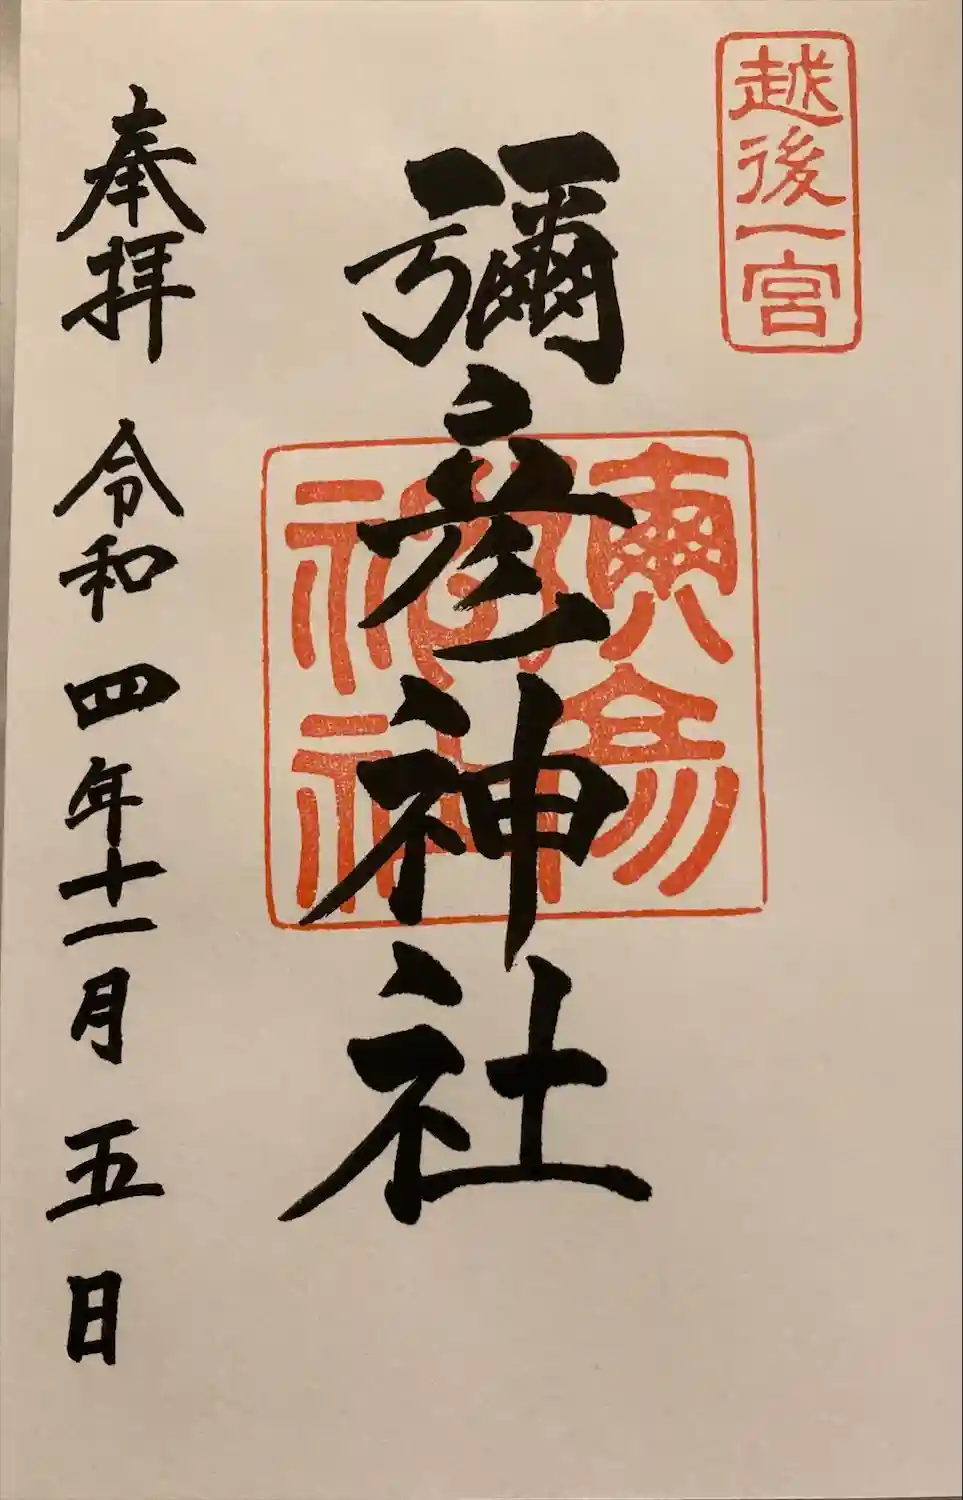 越後一宮
彌彦神社
奉拝 令和四年十一月五日